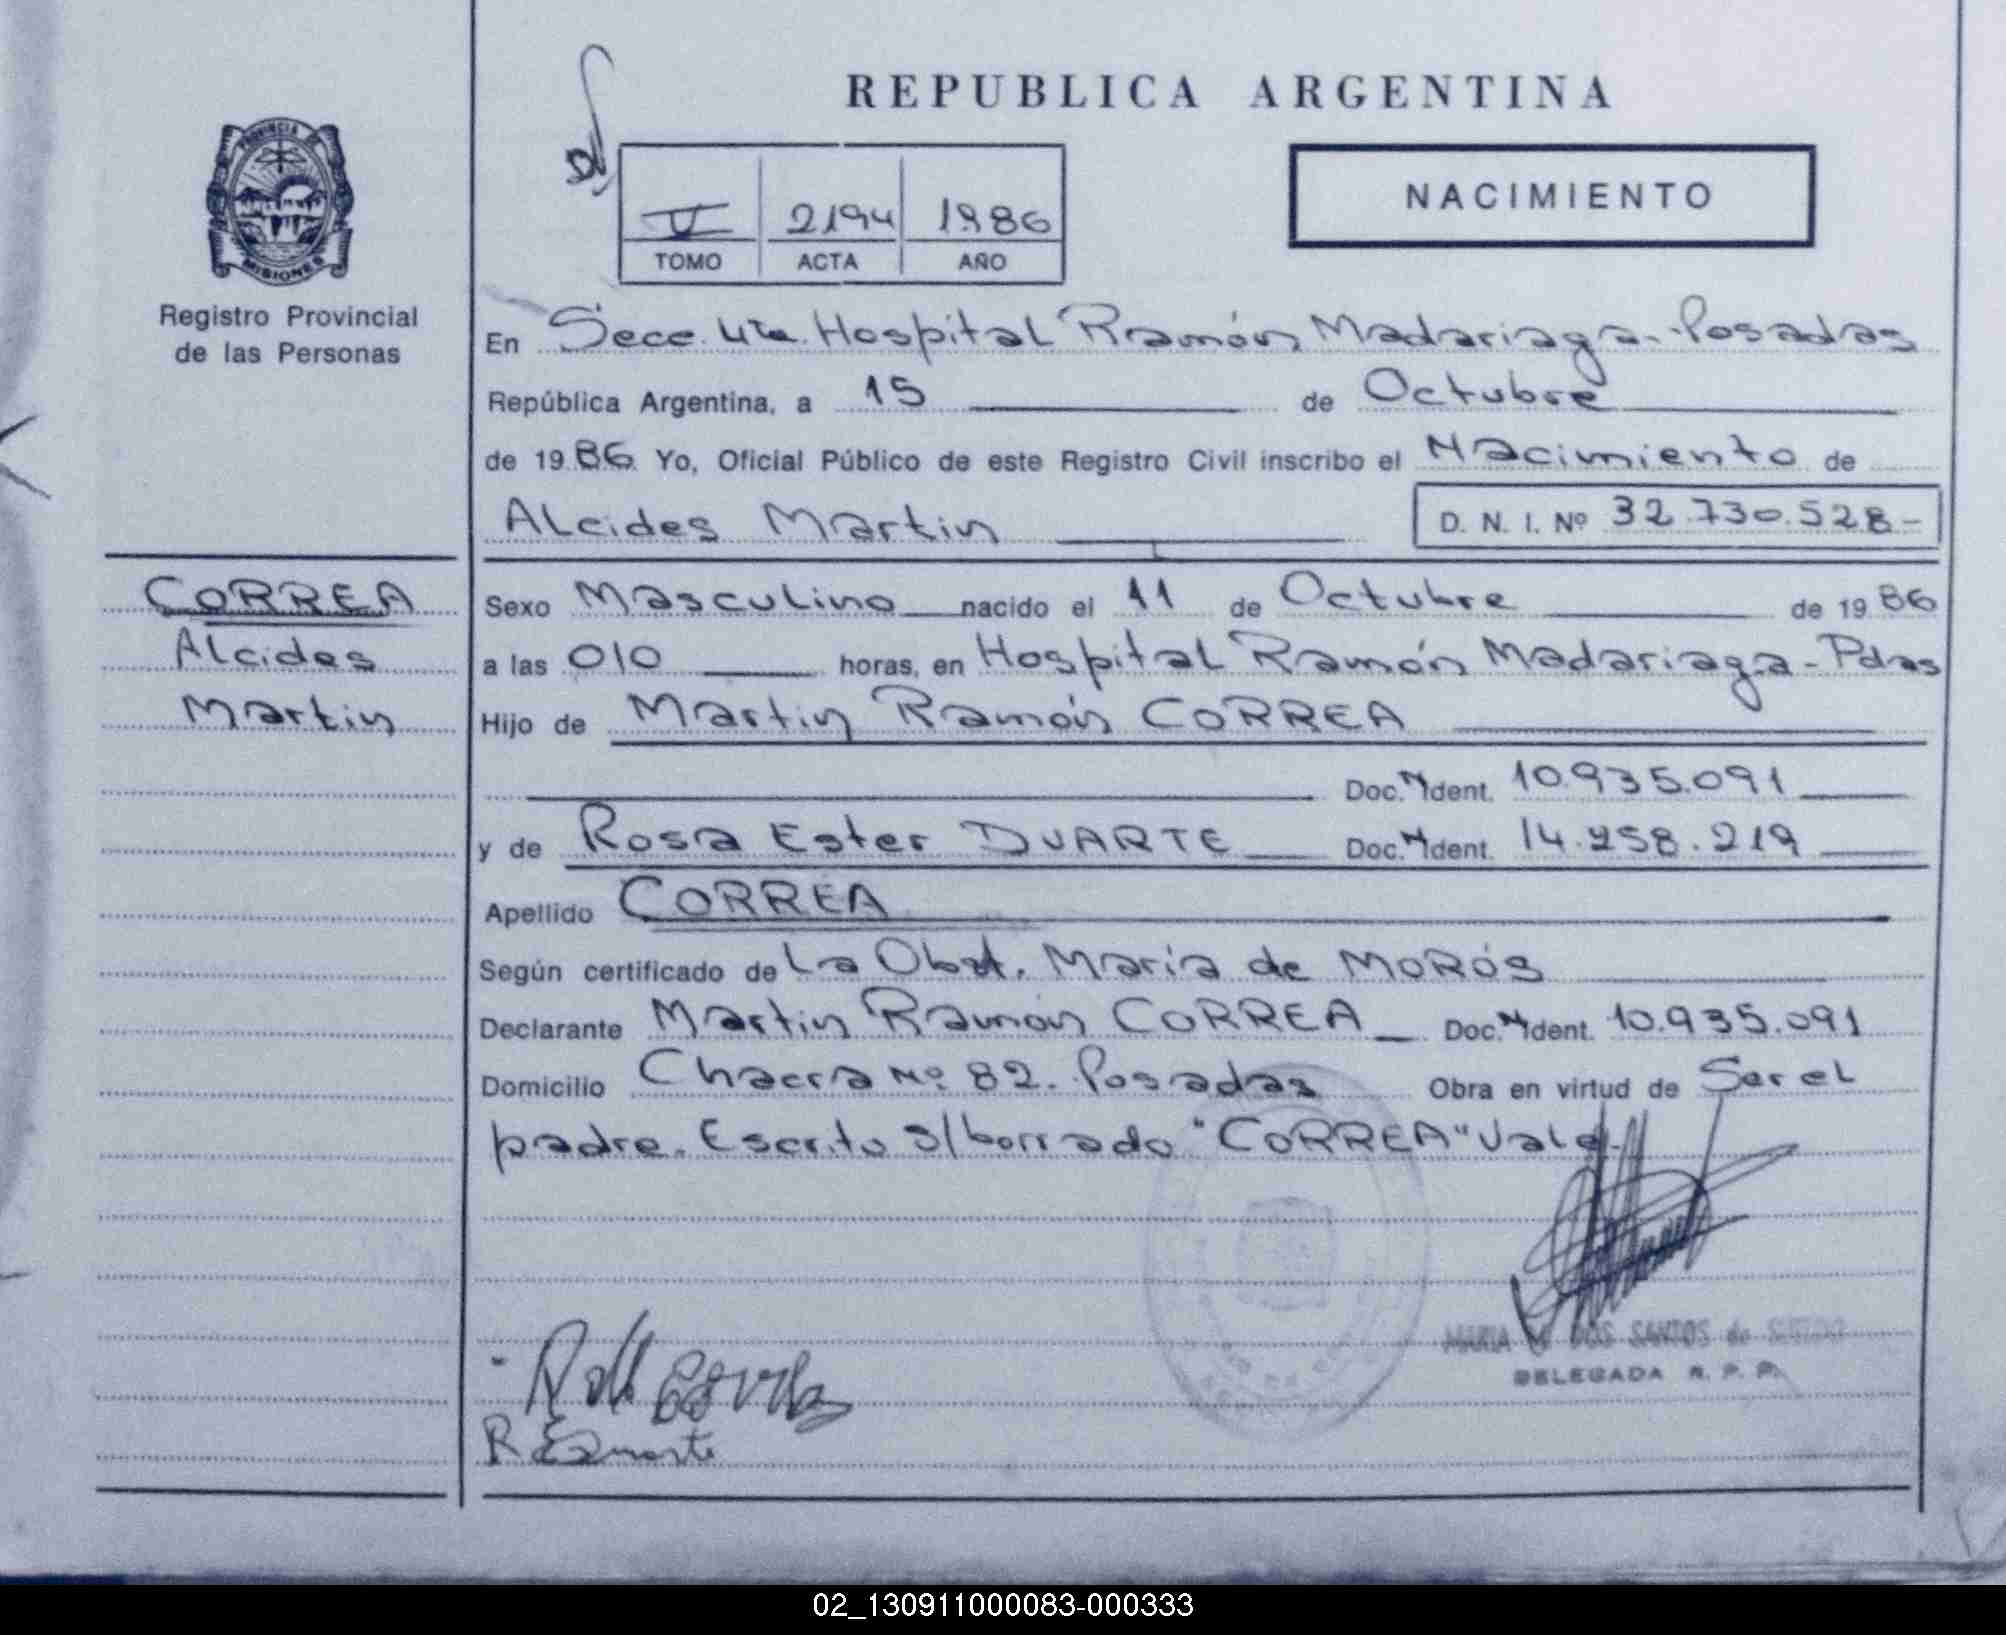 REPUBLICA ARGENTINA
PROVINCIA DE
MISIONES
Registro Provincial
de las Personas
V 2194 1986
TOMO ACTA AÑO
NACIMIENTO
En Secc. 4ta. Hospital Ramón Madariaga-Posadas
República Argentina, a 15 de Octubre
de 1986 Yo, Oficial Público de este Registro Civil inscribo el Nacimiento de
Alcides Martin D. N. I. Nº 32.730.528-
CORREA
Alcides
Martin
Sexo Masculino nacido el 11 de Octubre de 1986
a las 010 horas, en Hospital Ramón Madariaga-Pdas
Hijo de Martin Ramón CORREA
Doc. Ident. 10.935.091
y de Rosa Ester DUARTE Doc. Ident. 14.258.219
Apellido CORREA
Según certificado de La Obst. Maria de MORÓS
Declarante Martin Ramón CORREA Doc. Ident. 10.935.091
Domicilio Chacra Nº 82. Posadas Obra en virtud de Ser el
padre. Escrito s/borrado "CORREA" Vale.
MARIA DOS SANTOS de
DELEGADA R. P. P.
02_130911000083-000333